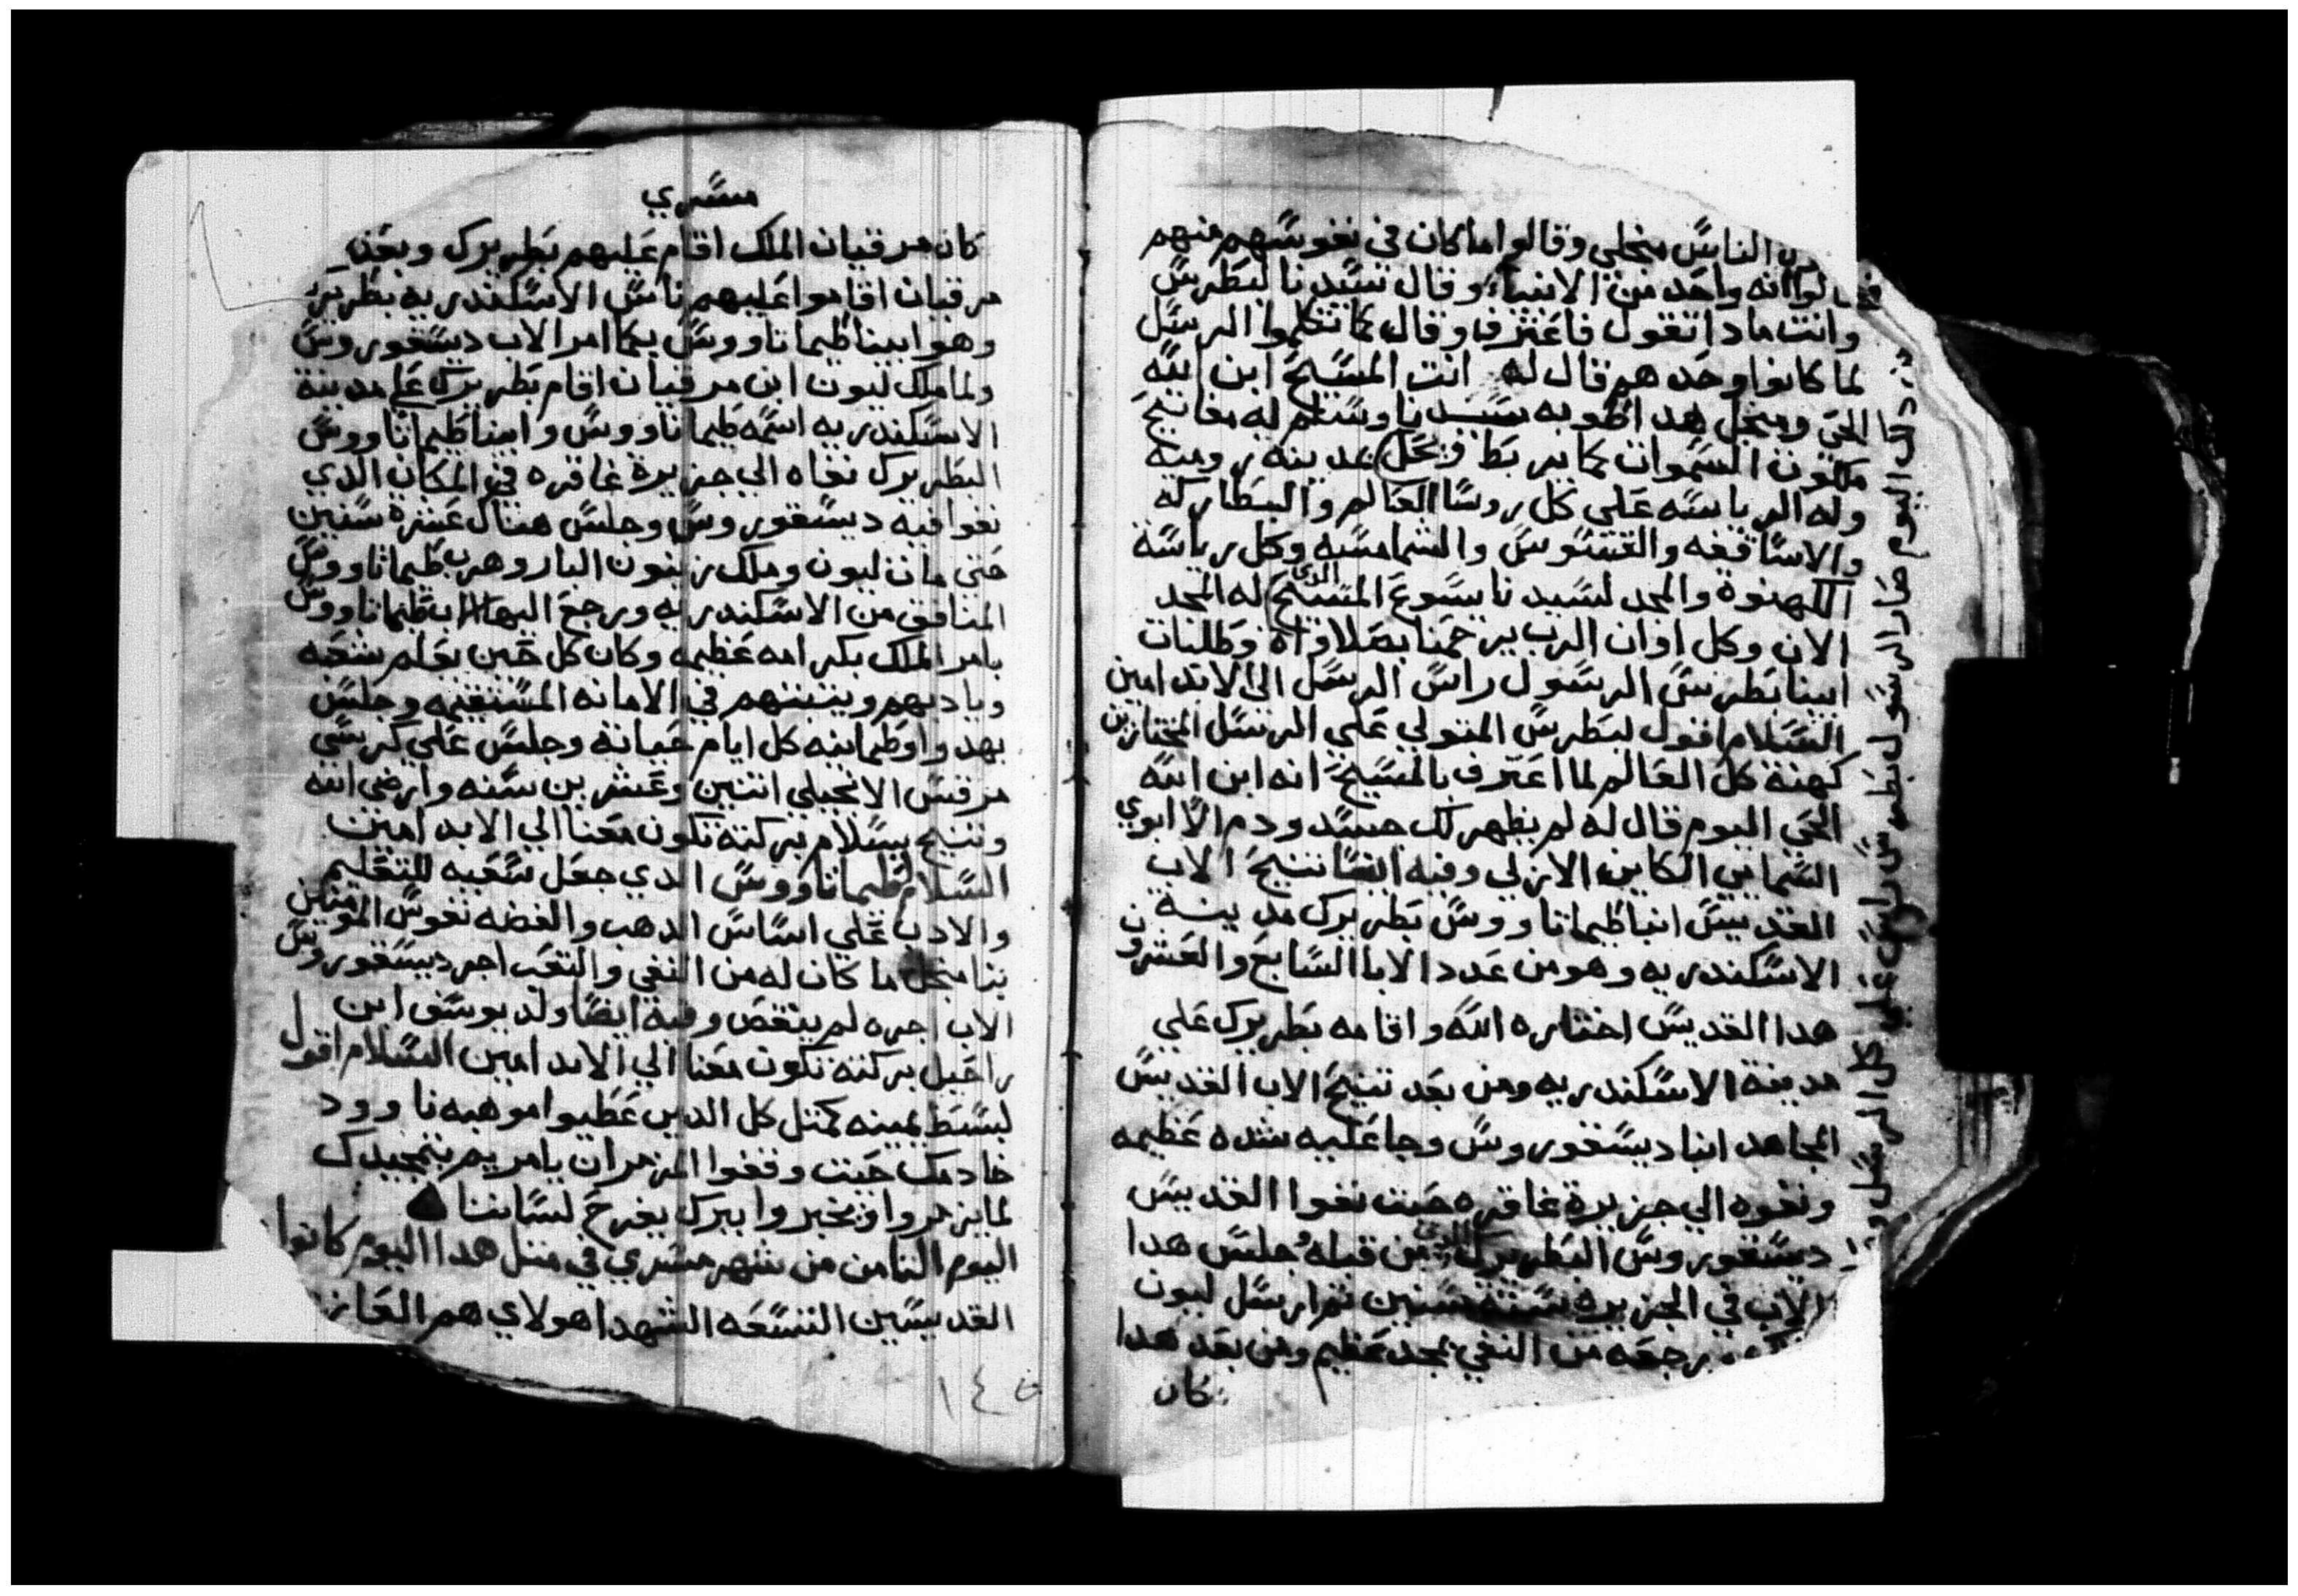 الناس منجلي وقالوا ما كان في نفوسهم منهم
قالوا انه واحد من الانبياء وقال سيدنا لبطرس
وانت مادا تقول فاعترف وقال كما تكلموا الرسل
لما كانوا وحدهم قال له انت المسيح ابن الله
الحي ومنجل هدا اطوبه سيدنا وسلم له مفاتيح
ملكوت السموات كما يربط ويحل بمدينه روميه
وله الرياسه علي كل روسا العالم والبطاركه
والاساقفه والقسوس والشمامسه وكل رياسة
الكهنوة والمجد لسيدنا يسوع المسيح الذي له المجد
الان وكل اوان الرب يرحمنا بصلاواة وطلبات
ابينا بطرس الرسول راس الرسل الي الابد امين
السلام اقول لبطرس المتولي علي الرسل المختارين
كهنة كل العالم لما اعترف بالمسيح انه ابن الله
الحي اليوم قال له لم يظهر لك جسد ودم الا ابوي
السماين الكاين الازلي وفيه ايضا تنيح الاب
القديس انبا طيماتاووس بطريرك مدينة
الاسكندريه وهو من عدد الابا السابع والعشرون
هدا القديس اختاره الله واقامه بطريرك علي
مدينة الاسكندريه ومن بعد تنيح الاب القديس
المجاهد انبا ديسقوروس وجا عليه شده عظيمه
ونفوه الي جزيرة غاقره حيت نفوا القديس
ديسقوروس البطريرك الذي من قبله وجلس هدا
الاب في الجزيره ستة سنين تم ارسل ليون
رجعه من النفي بمجد عظيم ومن بعد هدا
كان
اليوم صار الرسول بطرس راس علي كل الرسل
مسري
كان مرقيان الملك اقام عليهم بطريرك وبعد
مرقيان اقاموا عليهم ناس الاسكندريه بطريرك
وهو ابينا طيماتاووس بكما امر الاب ديسقوروس
ولما ملك ليون ابن مرقيان اقام بطريرك علي مدينة
الاسكندريه اسمه طيماتاووس وابينا طيماتاووس
البطريرك نفاه الي جزيرة غاقره في المكان الدي
نفوا فيه ديسقوروس وجلس هناك عشرة سنين
حتي مات ليون وملك زينون البار وهرب طيماتاووس
المنافق من الاسكندريه ورجع اليها انبا طيماتاووس
بامر الملك بكرامه عظيمه وكان كل حين يعلم شعبه
وياديهم ويتبتهم في الامانه المستقيمه وجلس
بهدوا وطمانينه كل ايام حياته وجلس علي كرسي
مرقس الانجيلي اتنين وعشرين سنه وارضي الله
وتنيح بسلام بركته تكون معنا الي الابد امين
السلام لطيماتاووس الدي جعل شعبه للتعليم
والادب علي اساس الدهب والفضه نفوس المومنين
بنا منجل ما كان له من النفي والتعب اجر ديسقوروس
الاب اجره لم ينقص وفيه ايضا ولد يوسف ابن
راحيل بركته تكون معنا الي الابد امين السلام اقول
لبسط يمينه كمتل كل الدين عطيوا موهبه نا وود
خادمك حيت وقفوا المزمران يا مريم بتمجيدك
لما يزمروا ويخبروا ببرك يفرح لساننا
اليوم التامن من شهر مسري في متل هدا اليوم كانوا
القديسين التسعه الشهدا هولاي هم العازر
١٤٥